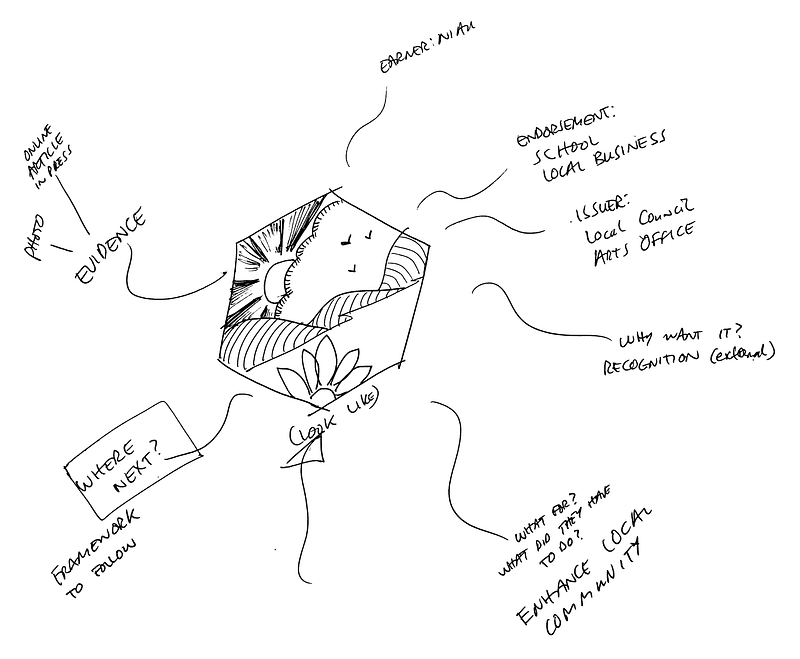 EARNER: NIAH
ENDORSEMENT:
SCHOOL
LOCAL BUSINESS
ISSUER:
LOCAL COUNCIL
ARTS OFFICE
WHY WANT IT?
RECOGNITION (external)
WHAT FOR?
WHAT DID THEY HAVE
TO DO?
ENHANCE LOCAL
COMMUNITY
(LOOK LIKE)
WHERE
NEXT?
FRAMEWORK
TO FOLLOW
EVIDENCE
PHOTO
ONLINE
ARTICLE
IN PRESS